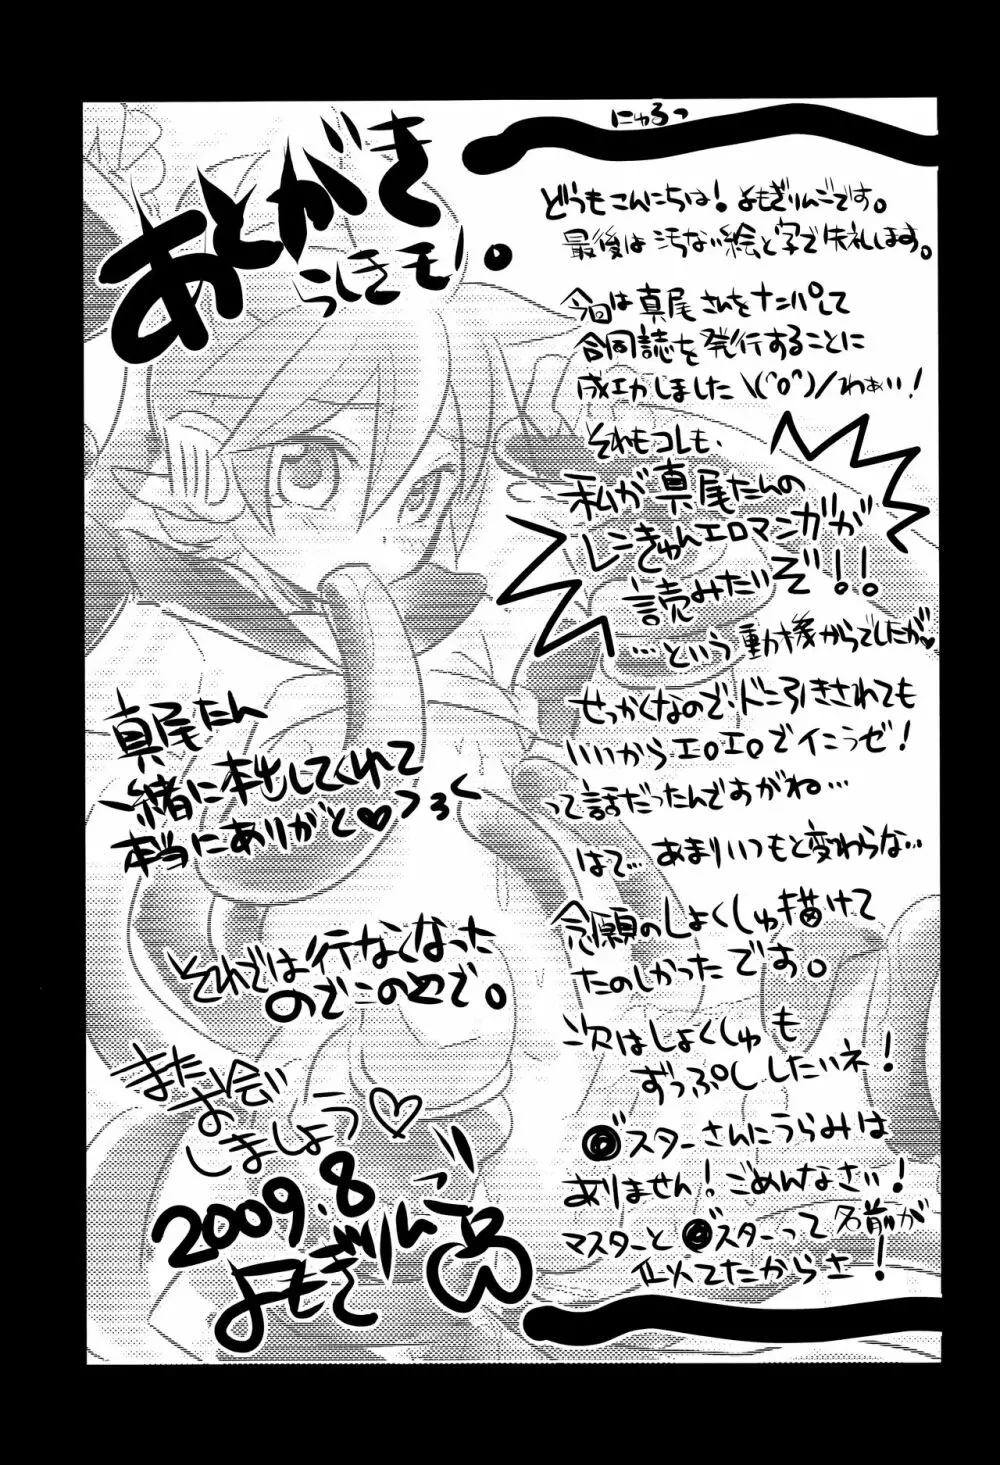 にゅるっ
あとがき
らしきモノ。
どうもこんにちは！よもぎりんごです。
最後は汚ない絵と字で失礼します。
今回は真尾さんをナンパして
合同誌を発行することに
成功しました\(^o^)/わぁい！
それもコレも、
私が真尾たんの
レンきゅんエロマンガが
読みたいぞ!!
…という動機からでしたが♥
せっかくなので、ドン引きされても
いいからエロエロでイこうぜ！
って話だったんですがね…
はて… あまりいつもと変わらな…
念願のしょくしゅ描けて
たのしかったです。
次はしょくしゅも
ずっぷりしたいネ！
◎スターさんにうらみは
ありません！ごめんなさい！
マスターと◎スターって名前が
似てたからさ！
真尾たん
一緒に本出してくれて
本当にありがと♥つろく
それでは行なくなった
のでこの辺で。
またお会い
しましょう♡
2009.8
よもぎりんご